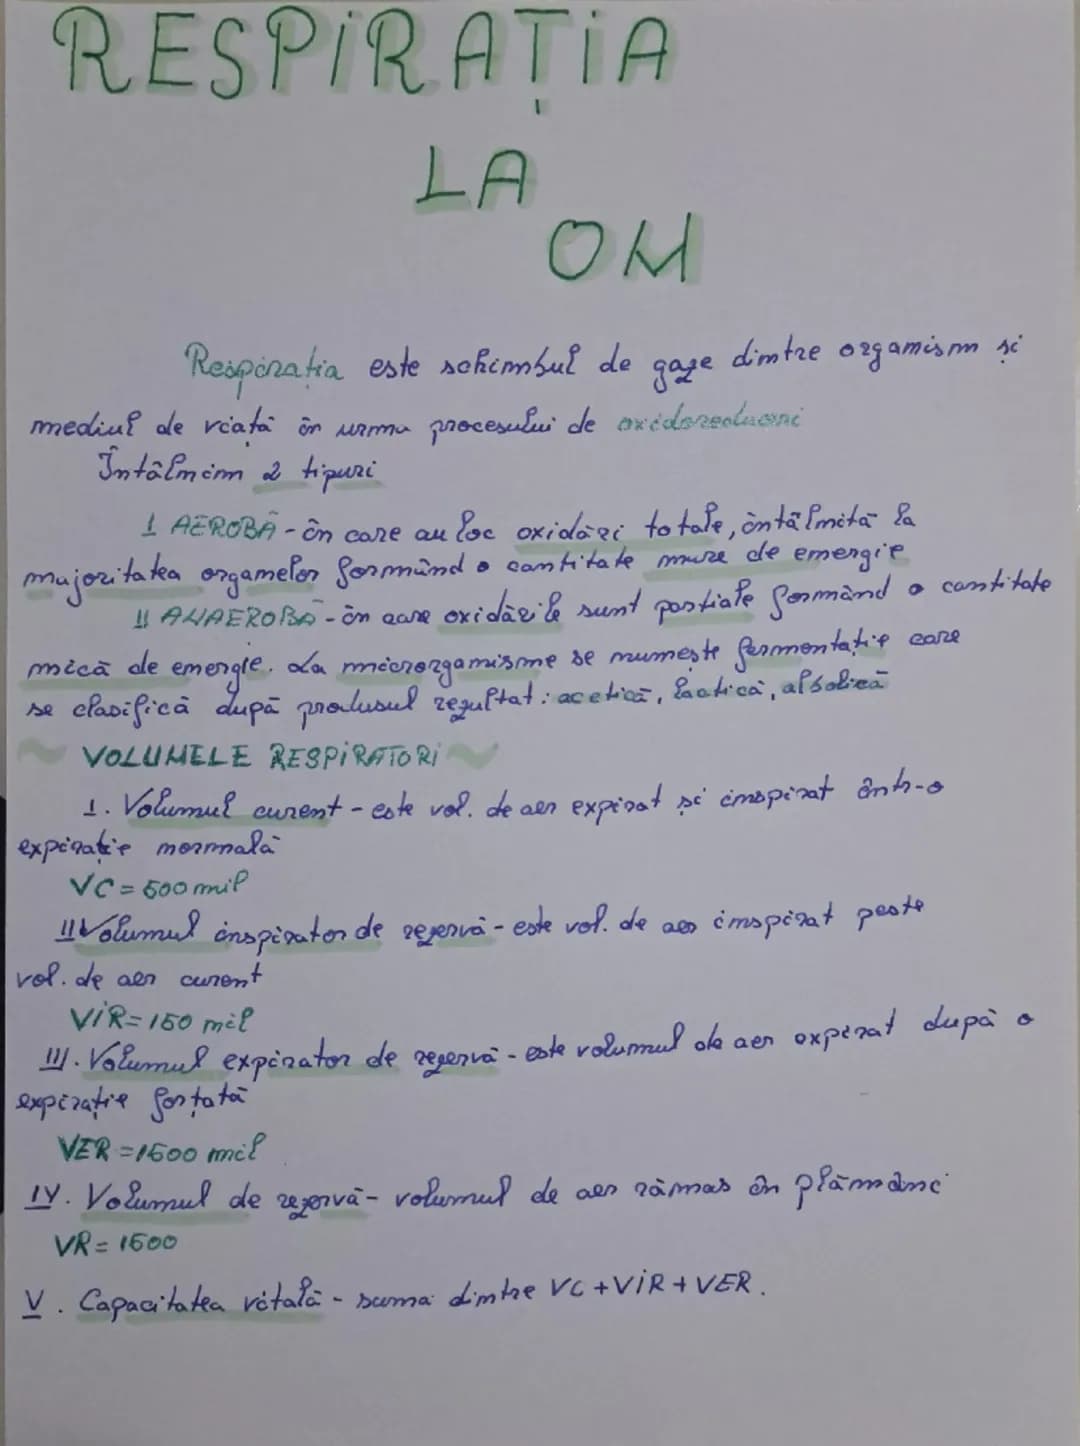 RESPIRAȚIA
LA
OM
Respirația este schimbul de gaze dintre organism și
mediul de viață în urma procesului de oxidoreduceri
Întâlnim 2 tipuri
I AEROBĂ - în care au loc oxidări totale, întâlnită la
majoritatea organelor formând o cantitate mare de energie
II ANAEROBĂ - în care oxidările sunt parțiale formând o cantitate
mică de energie. La microorganisme se numește fermentație care
se clasifică după produsul rezultat: acetică, lactică, alcolică
VOLUMELE RESPIRATORI
I. Volumul curent - este vol. de aer expirat și inspirat într-o
expirație normală
VC = 500 mil
II Volumul inspirator de rezervă - este vol. de aer inspirat peste
vol. de aer curent
VIR = 150 mil
III. Volumul expirator de rezervă - este volumul de aer expirat după o
expirație forțată
VER = 1500 mil
IV. Volumul de rezervă - volumul de aer rămas în plămâni
VR = 1500
V. Capacitatea vitală - suma dintre VC + VIR + VER.